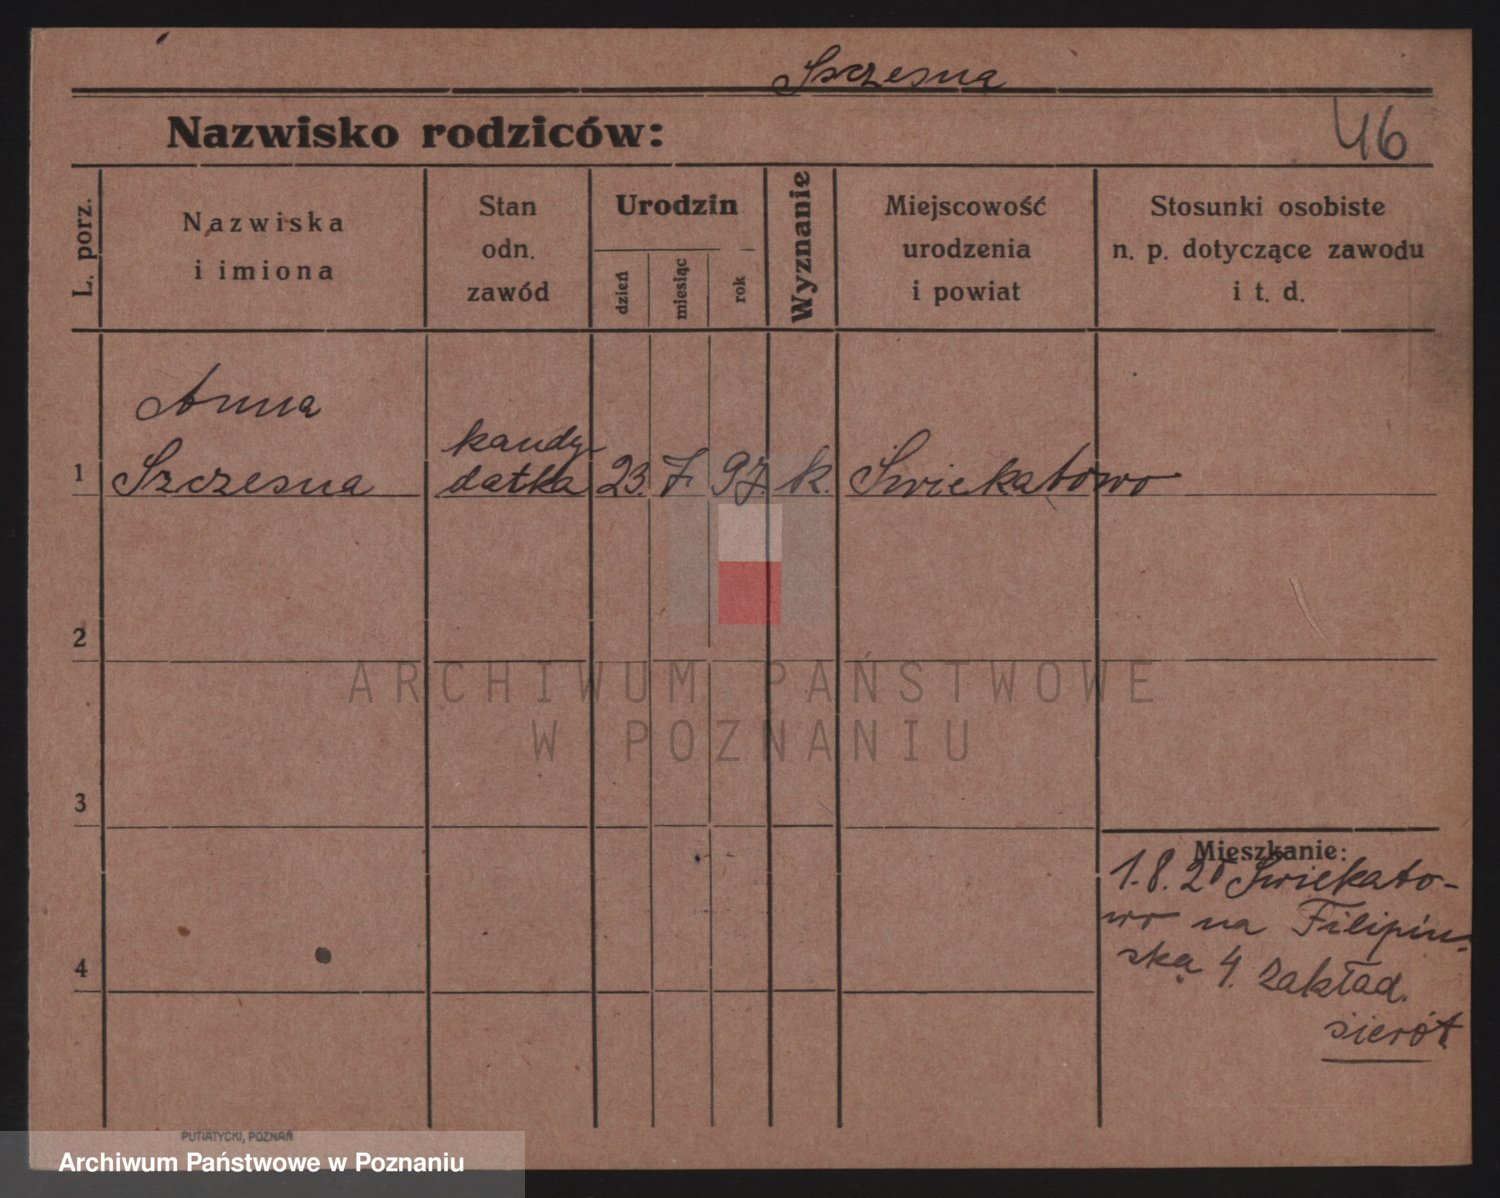 Szczesna
Nazwisko rodziców:
46
L. porz.
Nazwiska
i imiona
Stan
odn.
zawód
Urodzin
dzień
miesiąc
rok
Wyznanie
Miejscowość
urodzenia
i powiat
Stosunki osobiste
n. p. dotyczące zawodu
i t. d.
Anna
1 Szczesna
kandy-
datka
23. 7. 97. k. Świekatowo
2
3
4
Mieszkanie:
1.8.25 Świekato-
wo na Filipiń-
ską 4. Zakład.
sierót
ARCHIWUM PAŃSTWOWE
W POZNANIU
PUTIATYCKI, POZNAŃ
Archiwum Państwowe w Poznaniu